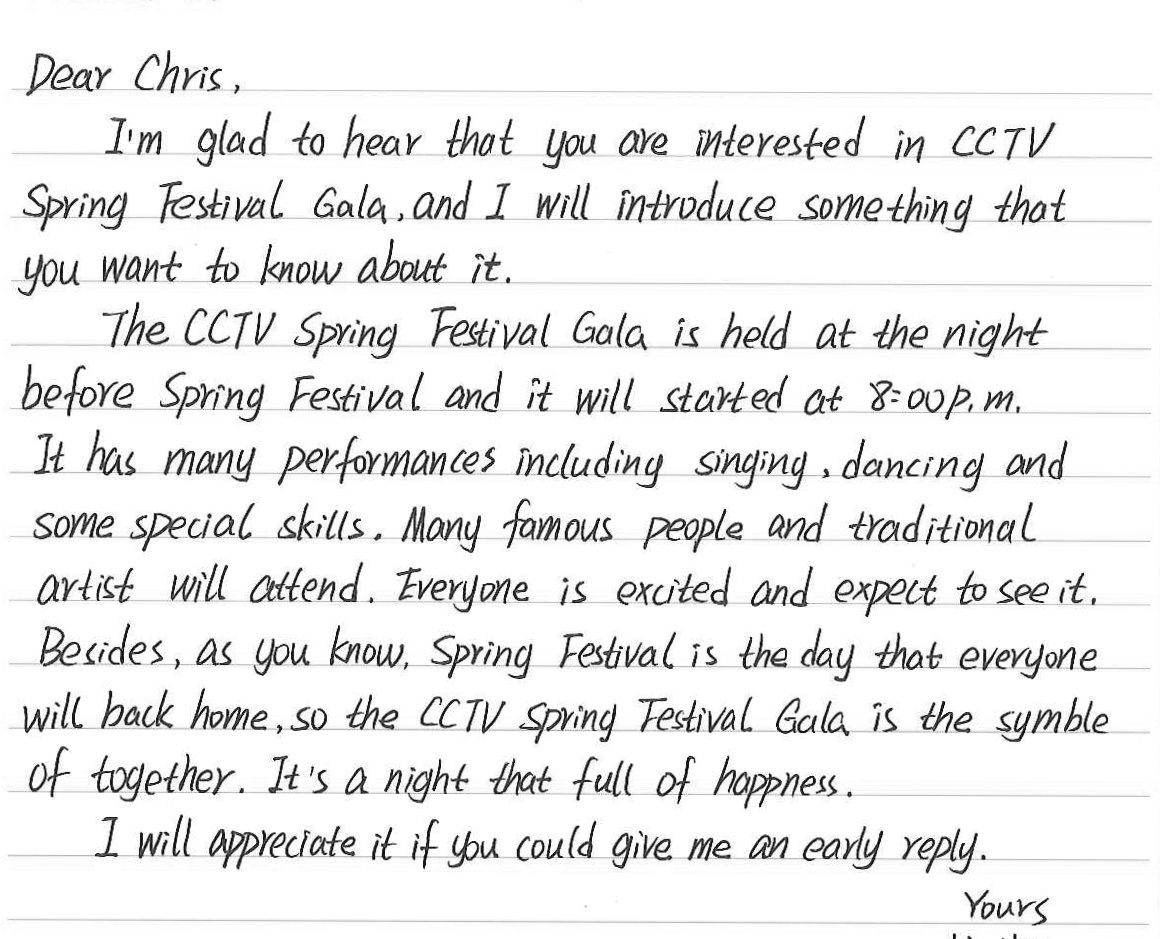 Dear Chris,
I'm glad to hear that you are interested in CCTV
Spring Festival Gala, and I will introduce something that
you want to know about it.
The CCTV Spring Festival Gala is held at the night
before Spring Festival and it will started at 8:00 p.m.
It has many performances including singing, dancing and
some special skills. Many famous people and traditional
artist will attend. Everyone is excited and expect to see it.
Besides, as you know, Spring Festival is the day that everyone
will back home, so the CCTV Spring Festival Gala is the symble
of together. It's a night that full of happness.
I will appreciate it if you could give me an early reply.
Yours